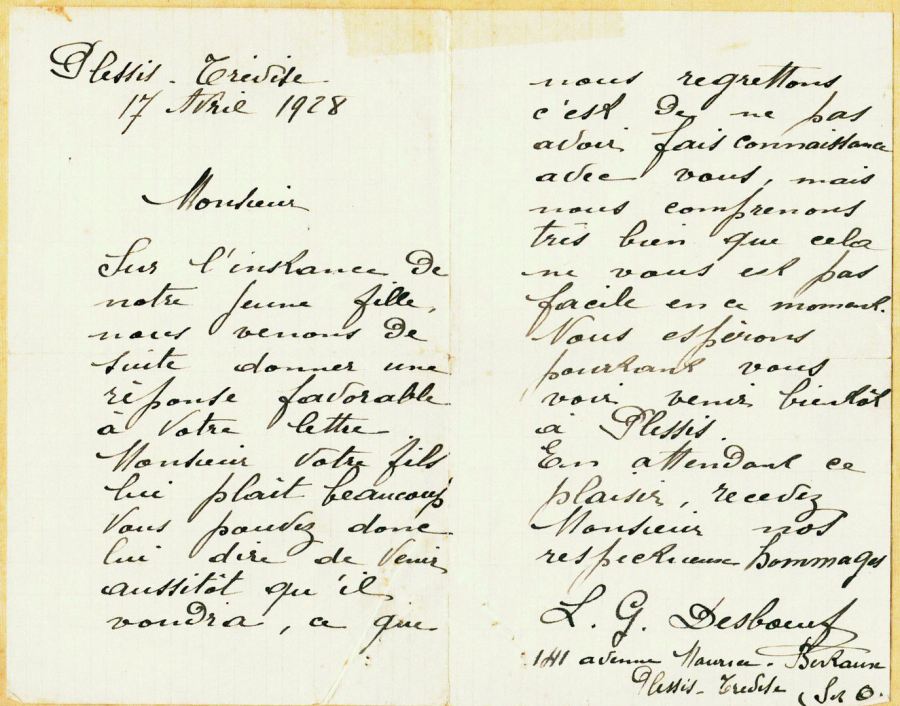 Plessis-Trévise
17 Avril 1928
Monsieur
Sur l'instance de
notre jeune fille,
nous venons de
suite donner une
réponse favorable
à votre lettre.
Monsieur votre fils
lui plaît beaucoup
Vous pouvez donc
lui dire de venir
aussitôt qu'il
voudra, ce que
nous regrettons
c'est de ne pas
avoir fais connaissance
avec vous, mais
nous comprenons
très bien que cela
ne vous est pas
facile en ce moment.
Nous espérons
pourtant vous
voir venir bientôt
à Plessis.
En attendant ce
plaisir, recevez
Monsieur nos
respectueux hommages
L. G. Desboeuf
141 avenue Maurice-Berteaux
Plessis-Trévise (S et O.